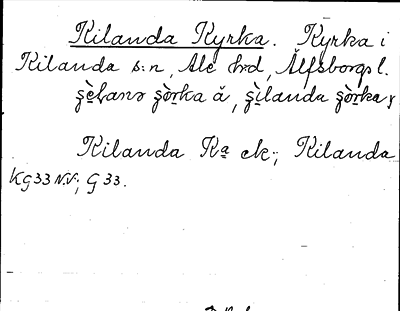 Kilanda Kyrka. Kyrka i
Kilanda s:n, Ale hrd, Älfsborgs l.
ʂèlans ʂòrka å, ʂìlanda ʂòrka,
Kilanda Ka ek; Kilanda
KG33 N.V; G 33.